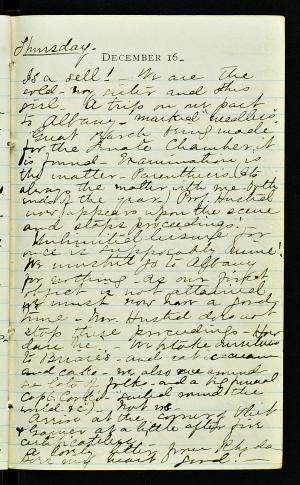 Thursday.
December 16.
Is a sell! - We are the
sold - my sister and this
girl. - A trip on our part
to Albany - marked "needless".
Great search being made
for the Senate Chamber, it
is found - Examination is
the matter - Parenthesis (It is
always the matter with me - both
ends of the year) Prof. Husted
now appears upon the scene
and stops proceedings.
Unlimited leisure for
once is
We mustn't go to Albany
for nothing - As our first
object is not obtained
we must now have a good
time - Mr. Husted does not
stop these proceedings - How
dare he. We take ourselves
to - and eat ice cream
and cake - we also see around
us lots of folk - and a big funnel
Capt. "sailed round the
world &c) - Not me
Arrive at the corner
a little after five
A lovely letter from Rhoda
my heart good. -